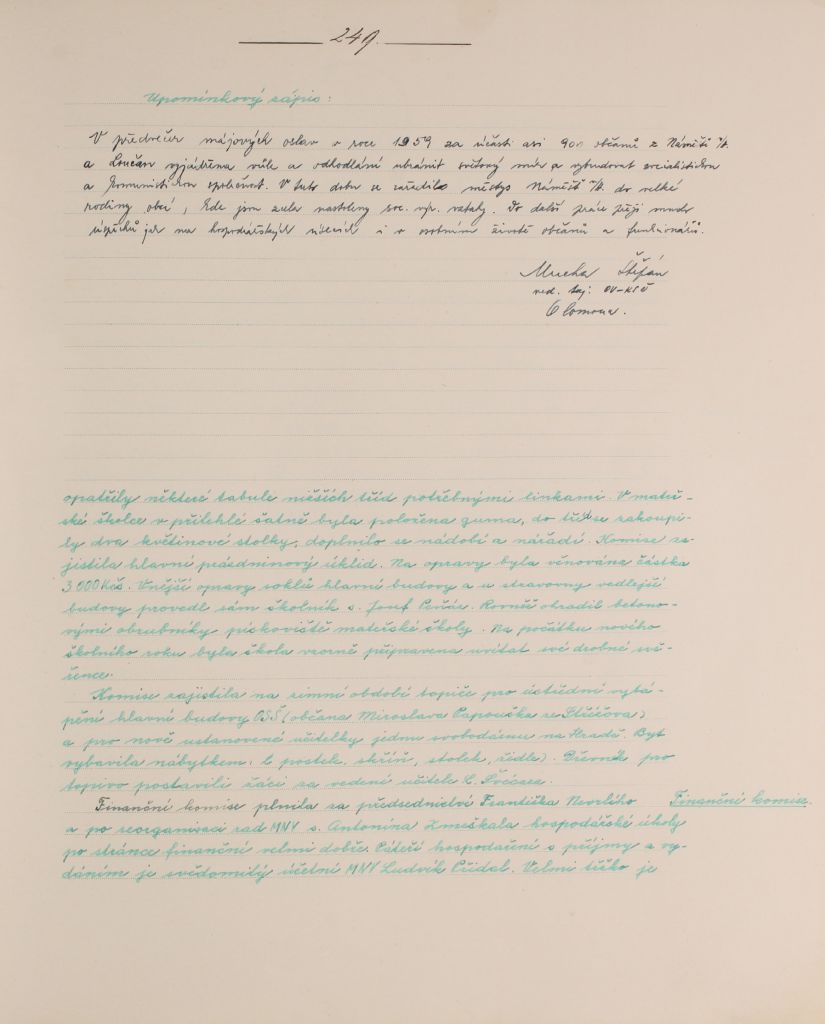 249.
Upomínkový zápis:
V předvečer májových oslav v roce 1959 za účasti asi 900 občanů z Náměště n/H.
a Loučan vyjádřena vůle a odhodlání ubránit světový mír a vybudovat socialistickou
a komunistickou společnost. V tuto dobu se zařadilo městys Náměšť n/H. do velké
rodiny obcí, kde jsou zcela nastoleny soc. výr. vztahy. Do další práce přeji mnoho
úspěchů jak na hospodářských úsecích i v osobním životě občanů a funkcionářů.
Mucha Štěfán
ved. taj. OV-KSČ
Olomouc.
opatřily některé tabule nižších tříd potřebnými linkami. V mateř-
ské školce v přilehlé šatně byla položena guma, do tříd se zakoupi-
ly dva květinové stolky, doplnilo se nádobí a nářadí. Komise za-
jistila hlavní prázdninový úklid. Na opravy byla věnována částka
3 000 Kčs. Vnější opravy soklů hlavní budovy a u stravovny vedlejší
budovy provedl sám školník s. Josef Rovněž ohradil betono-
vými obrubníky pískoviště mateřské školy. Na počátku nového
školního roku byla škola vzorně připravena uvítat své drobné svě-
řence.
Komise zajistila na zimní období topiče pro ústřední vytá-
pění hlavní budovy OSŠ (občana Miroslava Papouška ze Střížova)
a pro nově ustanovené učitelky jednu svobodárnu na Hradě. Byt
vybavila nábytkem. (postel, skříň, stolek, židle). Dřevník pro
topivo postavili žáci za vedení učitele
Finanční komise plnila za předsednictví Františka Nevrlého
Finanční komise.
a po reorganisaci rad MNV s. Antonína Zmeškala hospodářské úkoly
po stránce finanční velmi dobře. Páteří hospodaření s příjmy a vy-
dáním je svědomitý účetní MNV Ludvík Přidal. Velmi těžko je